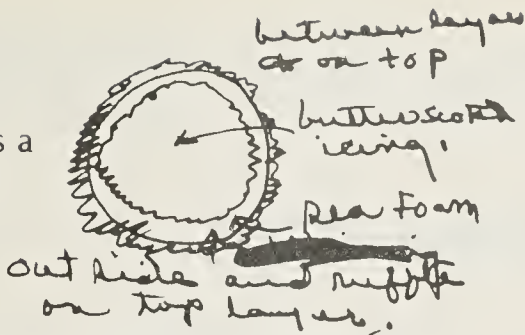 between layers
& on top
s a
butterscotch
icing.
Sea Foam
Out side and ruffle
on top layer.